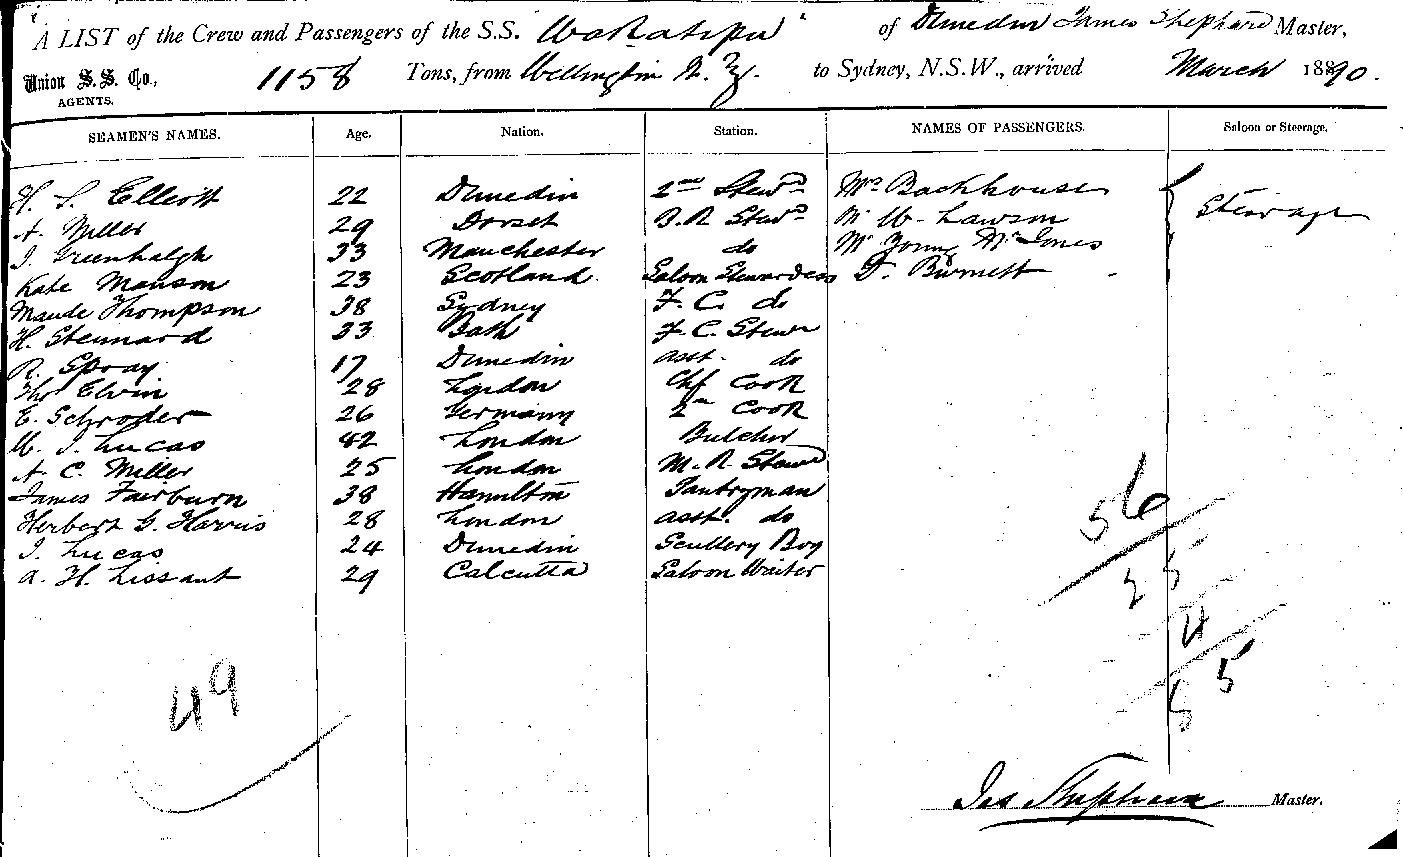 "A LIST of the Crew and Passengers of the S.S. Wakatipu" of Dunedin James Shephard Master,
Union S. S. Co., AGENTS. 1158 Tons, from Wellington N. Z. to Sydney, N.S.W., arrived March 1890.
SEAMEN'S NAMES. Age. Nation. Station. NAMES OF PASSENGERS. Saloon or Steerage.
H. S. Elliott 22 Dunedin 2nd Stewd Mrs Backhouse Steerage
A. Miller 29 Dorset B.R Stewd W. Lawson
J. Greenhalgh 33 Manchester do Mr Young Mr Jones
Kate Manson 23 Scotland Saloon Stewardess D. Burnett
Maude Thompson 38 Sydney F. C. do
H. Stennard 33 Bath F. C. Stewd
R. Spray 17 Dunedin asst. do
Thos Elvin 28 London Chf Cook
E. Schroder 26 Germany 2nd Cook
W. J. Lucas 42 London Butcher
A. C. Miller 25 London M. R. Stewd
James Fairburn 38 Hamilton Pantryman
Herbert G. Harris 28 London asst. do
J. Lucas 24 Dunedin Scullery Boy
A. H. Lissant 29 Calcutta Saloon Waiter
56
5
49
5
Jas Shephard Master.